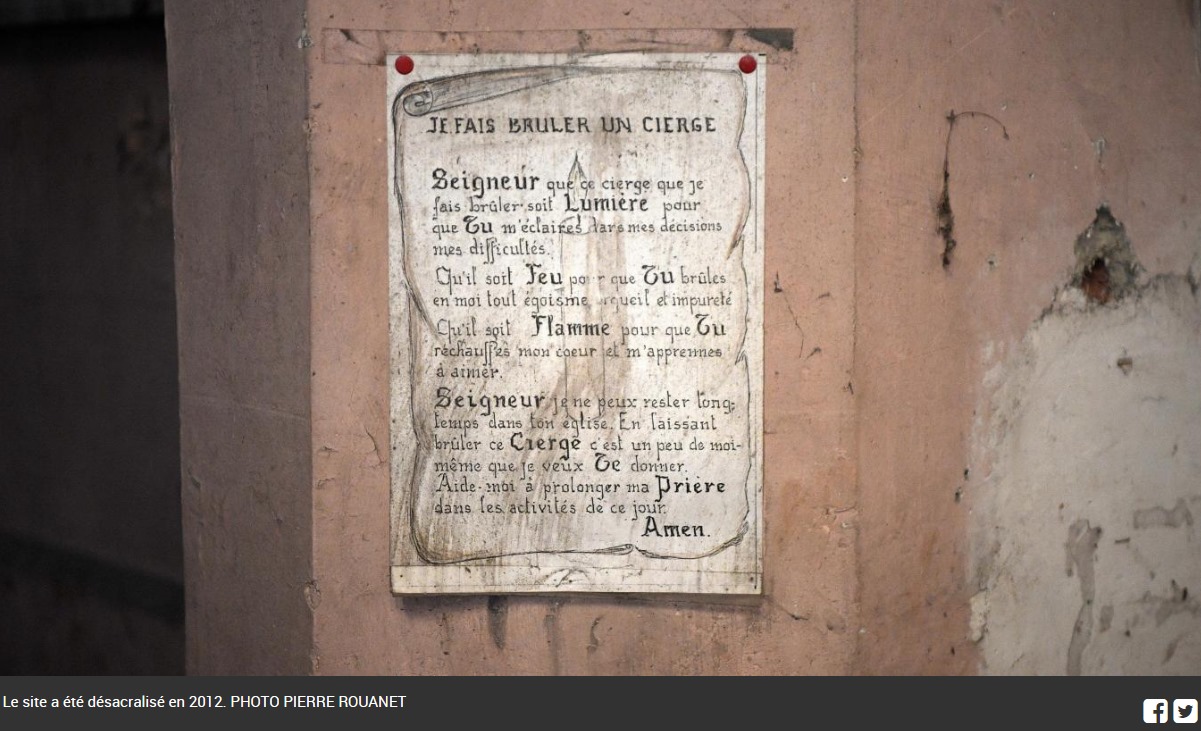 JE FAIS BRULER UN CIERGE
Seigneur que ce cierge que je
fais brûler soit Lumière pour
que Tu m'éclaires dans mes décisions
mes difficultés.
Qu'il soit Feu pour que Tu brûles
en moi tout égoïsme, orgueil et impureté
Qu'il soit Flamme pour que Tu
réchauffes mon coeur et m'apprennes
à aimer.
Seigneur je ne peux rester long-
temps dans ton église. En laissant
brûler ce Cierge c'est un peu de moi-
même que je veux Te donner.
Aide-moi à prolonger ma Prière
dans les activités de ce jour.
Amen.
Le site a été désacralisé en 2012. PHOTO PIERRE ROUANET